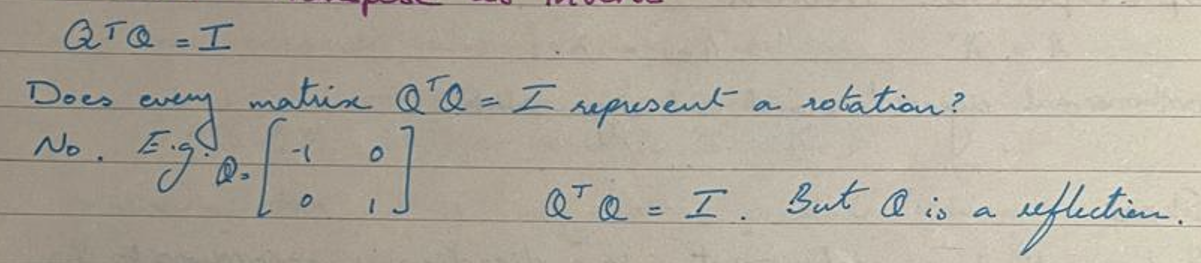 Q^T Q = I
Does every matrix Q^T Q = I represent a rotation?
No. E.g. Q = [ -1 0
0 1 ]
Q^T Q = I. But Q is a reflection.